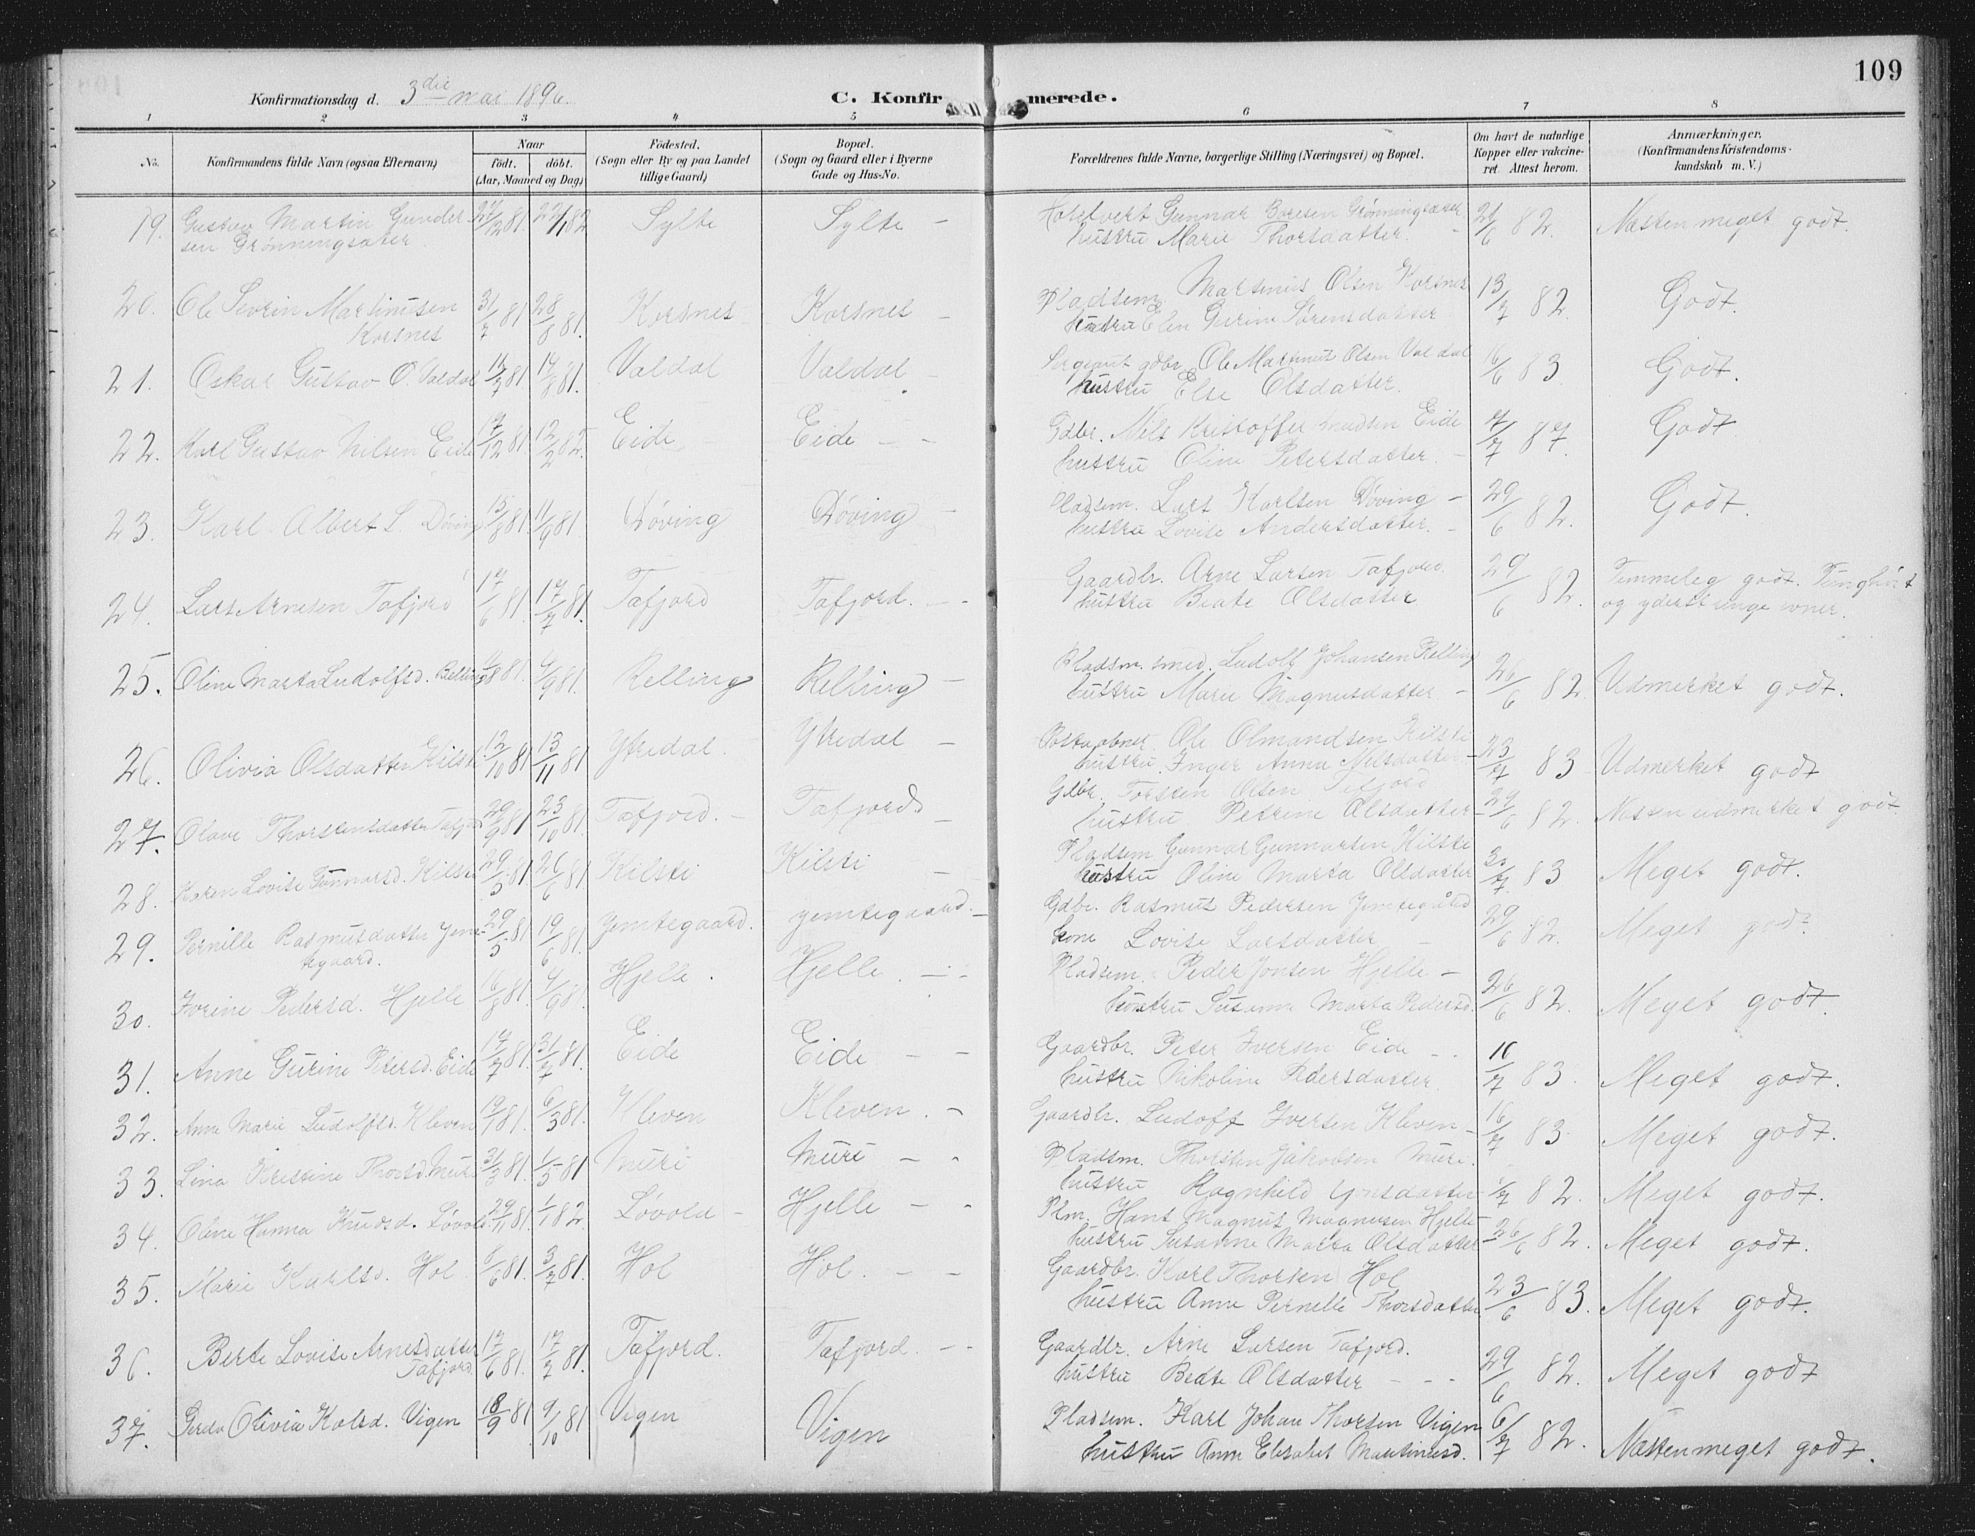 109
Konfirmationsdag d. 3die mai 1896.
C. Konfirmerede.
1 2 3 4 5 6 7 8
No.
Konfirmandens fulde Navn (ogsaa Efternavn)
Naar
födt. döbt.
(Aar, Maaned og Dag)
Födested.
(Sogn eller By og paa Landet
tillige Gaard)
Bopæl.
(Sogn og Gaard eller i Byerne
Gade og Hus-No.
Forældrenes fulde Navne, borgerlige Stilling (Næringsvei) og Bopæl.
Om havt de naturlige
Kopper eller vakcine-
ret. Attest herom.
Anmærkninger.
(Konfirmandens Kristendoms-
kundskab m. V.)
19. Gustav Martin Gunder- 81. 22/1 82 Sylte Sylte – Gunnar Boresen Grönningsæter 82. Næsten meget godt.
sen Grönningsæter hustru Marie Thorsdatter.
20. Ole Severin Martinusen 31/7 81 28/8 81. Korsnes Korsnes – Pladsem. Martinus Olsen Korsnes 13/7 82. Godt.
Korsnes hustru Elen Gurine Sörensdatter
21. Oskar Gustav O. Valdal 81 14/8 81. Valdal Valdal – Sergeant gdbr. Ole Martinus Olsen Valdal 16/6 83. Godt.
hustru Else Olsdatter.
22. Karl Gustav Nilsen Eide 17/12 81 12/2 82. Eide Eide – – Gdbr. Nils Kristoffer Eide 7/7 87. Godt
hustru Oline Petersdatter. –
23. Karl Albert L. Döving 15/8 81. 11/9 81. Döving Döving – Pladsem. Lars Karlsen Döving – 29/6 82. Godt.
hustru Lovise Andersdatter. –
24. Lars Arnesen Tafjord 17/6 81. 17/7 81. Tafjord Tafjord. – – Gaardbr. Arne Larsen Tafjord. 29/6 82. Temmeleg godt. Tunghört
hustru Beate Olsdatter og yderst ringe evner.
25. Oline Marta Ludolfsd. Relling 81. 4/9 81. Relling Relling – Pladsm. smed. Ludolf Johansen Relling 26/6 82. Udmerket godt.
hustru Marie Magnusdatter –
26. Olivia Olsdatter Kilsti 12/10 81. 13/11 81 Ytredal. Ytredal – Ole Olmandsen Kilsti 23/7 83 Udmerket godt
hustru Inger Anna Nilsdatter –
27. Olave Thorstensdatter Tafjord 29/9 81 23/10 81. Tafjord. – Tafjord – Gdbr. Torsten Olsen Tafjord 29/6 82. Næsten udmerket godt
hustru Petrine Olsdatter –
28. Karen Lovise Gunnarsd. Kilsti 29/5 81. 26/6 81 Kilsti Kilsti – Pladsem Gunnar Gunnarsen Kilsti 83 Meget godt.
hustru Oline Marta Olsdatter
29. Pernille Rasmusdatter Jemte- 29/5 81. 19/6 81. Jemtegaard. Jemtegaard. – Gdbr. Rasmus Pedersen Jemtegård 29/6 82. Meget godt.
gaard. kone Lovise Larsdatter –
30. Iverine Pedersd. Hjelle 16/8 81. 4/9 81. Hjelle. Hjelle. – Pladsem. Peder Jonsen Hjelle – 26/6 82. Meget godt.
hustru Susanne Marta Pedersd.
31. Anne Gurine Petersd. Eide 17/7 81. 31/7 81. Eide Eide – – Gaardbr. Peter Iversen Eide – 16/7 83. Meget godt.
hustru Nikoline Pedersdatter.
32. Anne Marie Ludolfsd. Kleven 19/1 81. 6/3 81. Kleven Kleven. – Gaardbr. Ludolf Iversen Kleven – 16/7 83. Meget godt.
33. Lina Kristine Thorsd. Muri 31/3 81. 1/5 81 Muri Muri – – Pladsm. Thorsten Jakobsen Muri. 82. Meget godt.
hustru Ragnhild Jonsdatter
34. Oline Hanna Knudsd. Lövold 29/11 81. 1/1 82. Lövold – Hjelle – – Plm. Hans Magnus Magnusen Hjelle – 26/6 82. Meget godt.
hustru Susanne Marta Olsdatter
35. Marie Karlsd. Hol 6/6 81. 3/7 81. Hol Hol. – – Gaardbr. Karl Thorsen Hol 23/6 83. Meget godt.
hustru Anne Pernelle Thorsdatter
36. Berte Lovise Arnesdatter 17/6 81. 17/7 81. Tafjord. Tafjord. – – Gaardbr. Arne Larsen Tafjord. 29/6 82. Meget godt
Tafjord. hustru Beate Olsdatter – – –
37. Gerda Olivia Kalsd. Vigen 18/9 81. 9/10 81. Vigen Vigen Pladsem. Karl Johan Thorsen Vigen 6/7 82. Næsten meget godt.
hustru Anne Elisabet Martinusd.